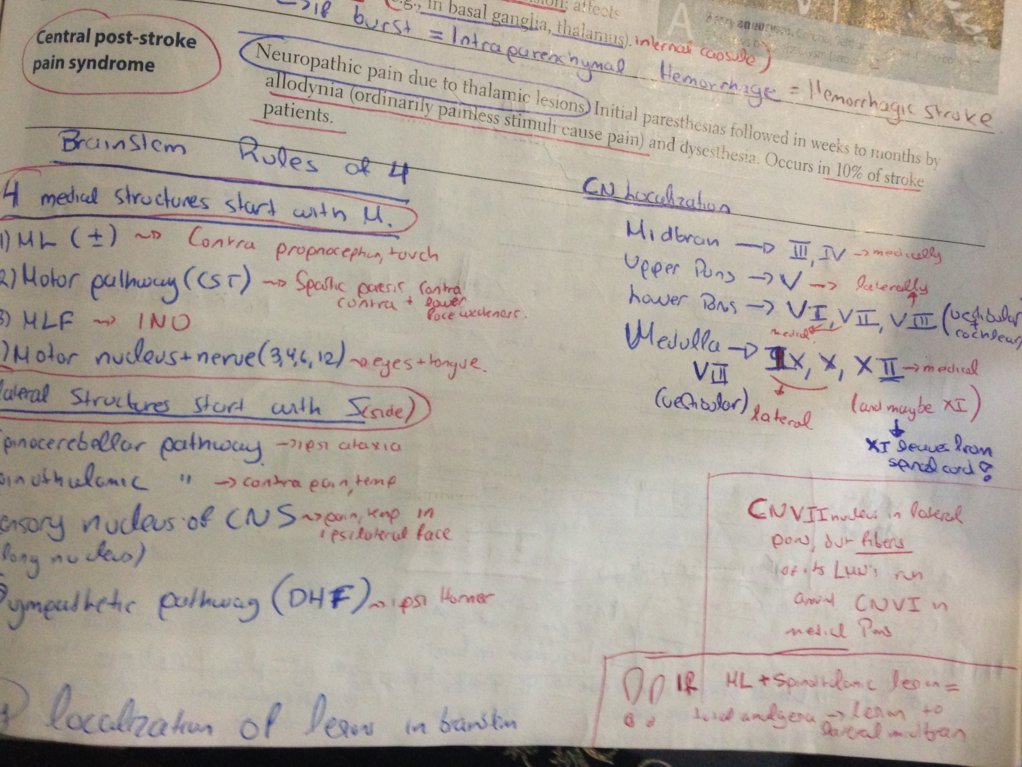 in basal ganglia, thalamus). internal capsule)
burst = Intraparenchymal Hemorrhage = Hemorrhagic stroke
Central post-stroke
pain syndrome
Neuropathic pain due to thalamic lesions. Initial paresthesias followed in weeks to months by
allodynia (ordinarily painless stimuli cause pain) and dysesthesia. Occurs in 10% of stroke
patients.
Brainstem Rules of 4
4 medial structures start with M.
1) ML (±) → Contra proprioception, touch
2) Motor pathway (CST) → Spastic paresis, contra
contra + lower
face weakness.
3) MLF → INO
) Motor nucleus + nerve (3,4,6,12) → eyes + tongue.
lateral structures start with S (side)
pinocerebellar pathway → ipsi ataxia
inothalamic " → contra pain, temp
ensory nucleus of CN5 → pain, temp in
ipsilateral face
long nucleus)
Sympathetic pathway (DHF) → ipsi Horner
localization of lesion in
CN Localization
Midbrain → III, IV → medially
Upper Pons → V → laterally
Lower Pons → VI, VII, VIII (vestibular
cochlear
medial
Medulla → IX, X, XII → medial
VIII
(vestibular) lateral (and maybe XI)
XI leaves from
spinal cord?
CNVII nucleus in lateral
pons, but fibers
of its LMN's run
around CNVI in
medial Pons
IR ML + Spinothalamic lesion =
→ lesion to
lateral midbrain